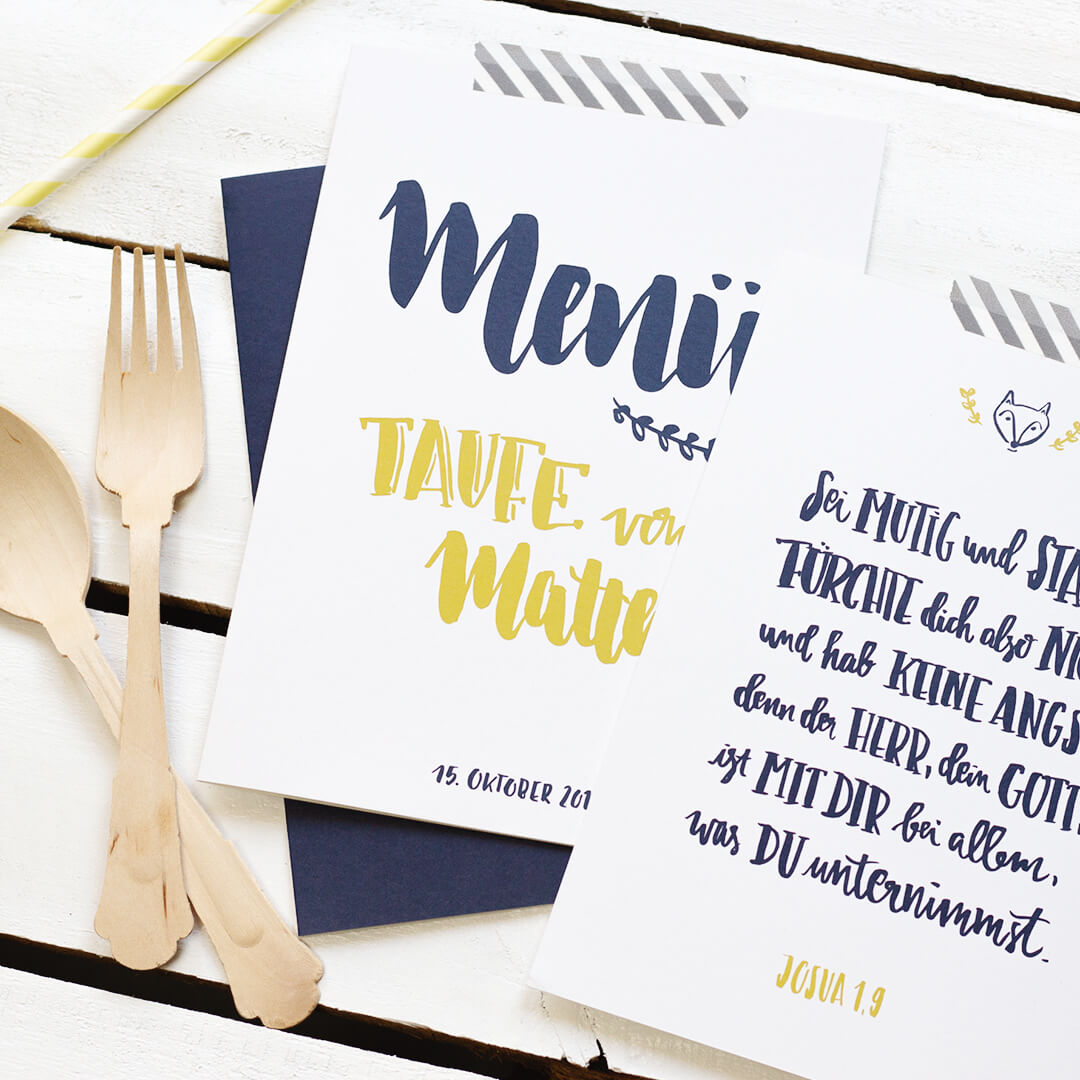 Menü
TAUFE von
Matth
15. OKTOBER 201
Sei MUTIG und STA
FÜRCHTE dich also NIC
und hab KEINE ANGS
denn der HERR, dein GOTT,
ist MIT DIR bei allem,
was DU unternimmst.
JOSUA 1,9